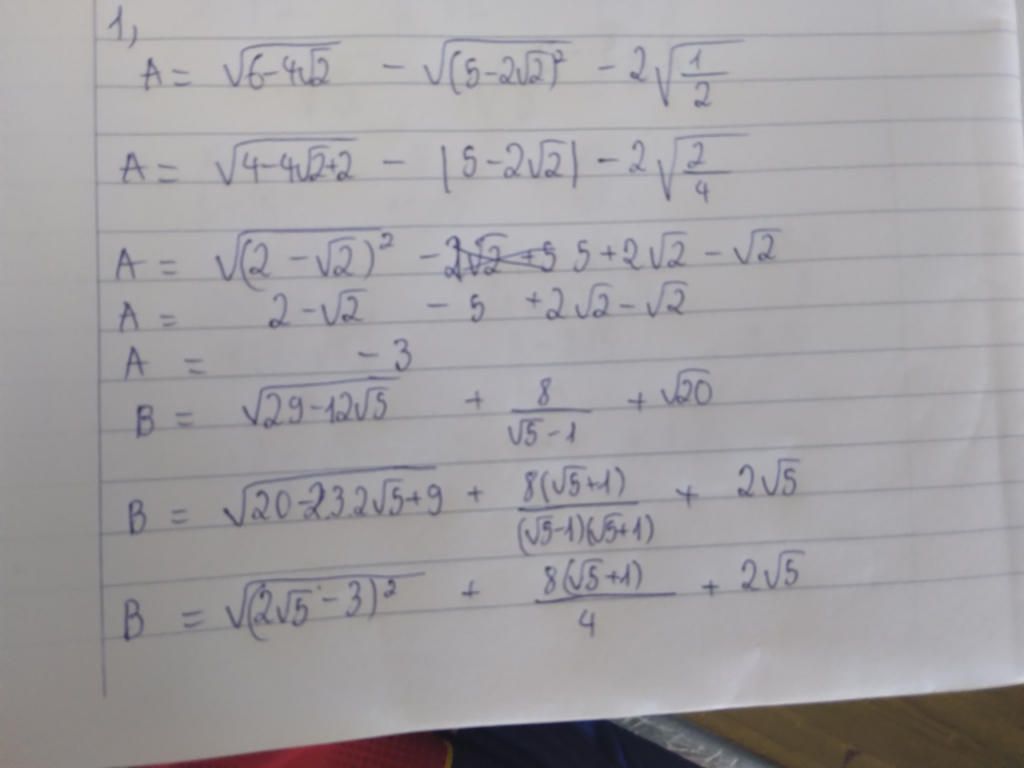 1,
A = √(6-4√2) - √((5-2√2)²) - 2√(1/2)
A = √(4-4√2+2) - |5-2√2| - 2√(2/4)
A = √((2-√2)²) - 5+2√2-√2
A = 2-√2 - 5 +2√2-√2
A = -3
B = √(29-12√5) + 8/(√5-1) + √20
B = √(20-2.3.2√5+9) + 8(√5+1)/((√5-1)(√5+1)) + 2√5
B = √((2√5-3)²) + 8(√5+1)/4 + 2√5